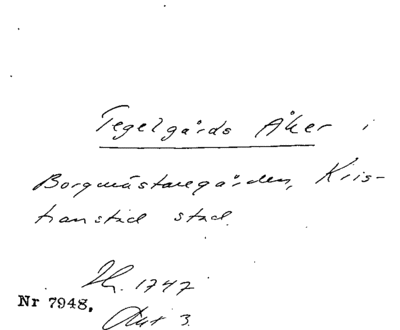 Tegelgårds Åker i
Borgmästaregården, Kris-
tianstad stad.
Hr. 1747
Nr 7948.
Akt 3.